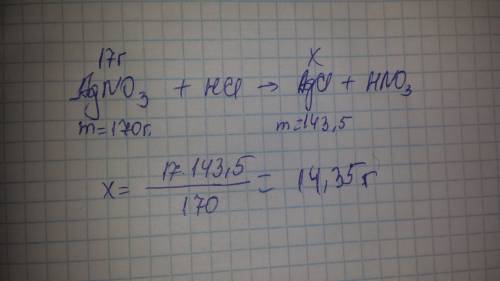 17г x
AgNO₃ + HCl → AgCl + HNO₃
m=170г. m=143,5
x = 17·143,5 / 170 = 14,35 г